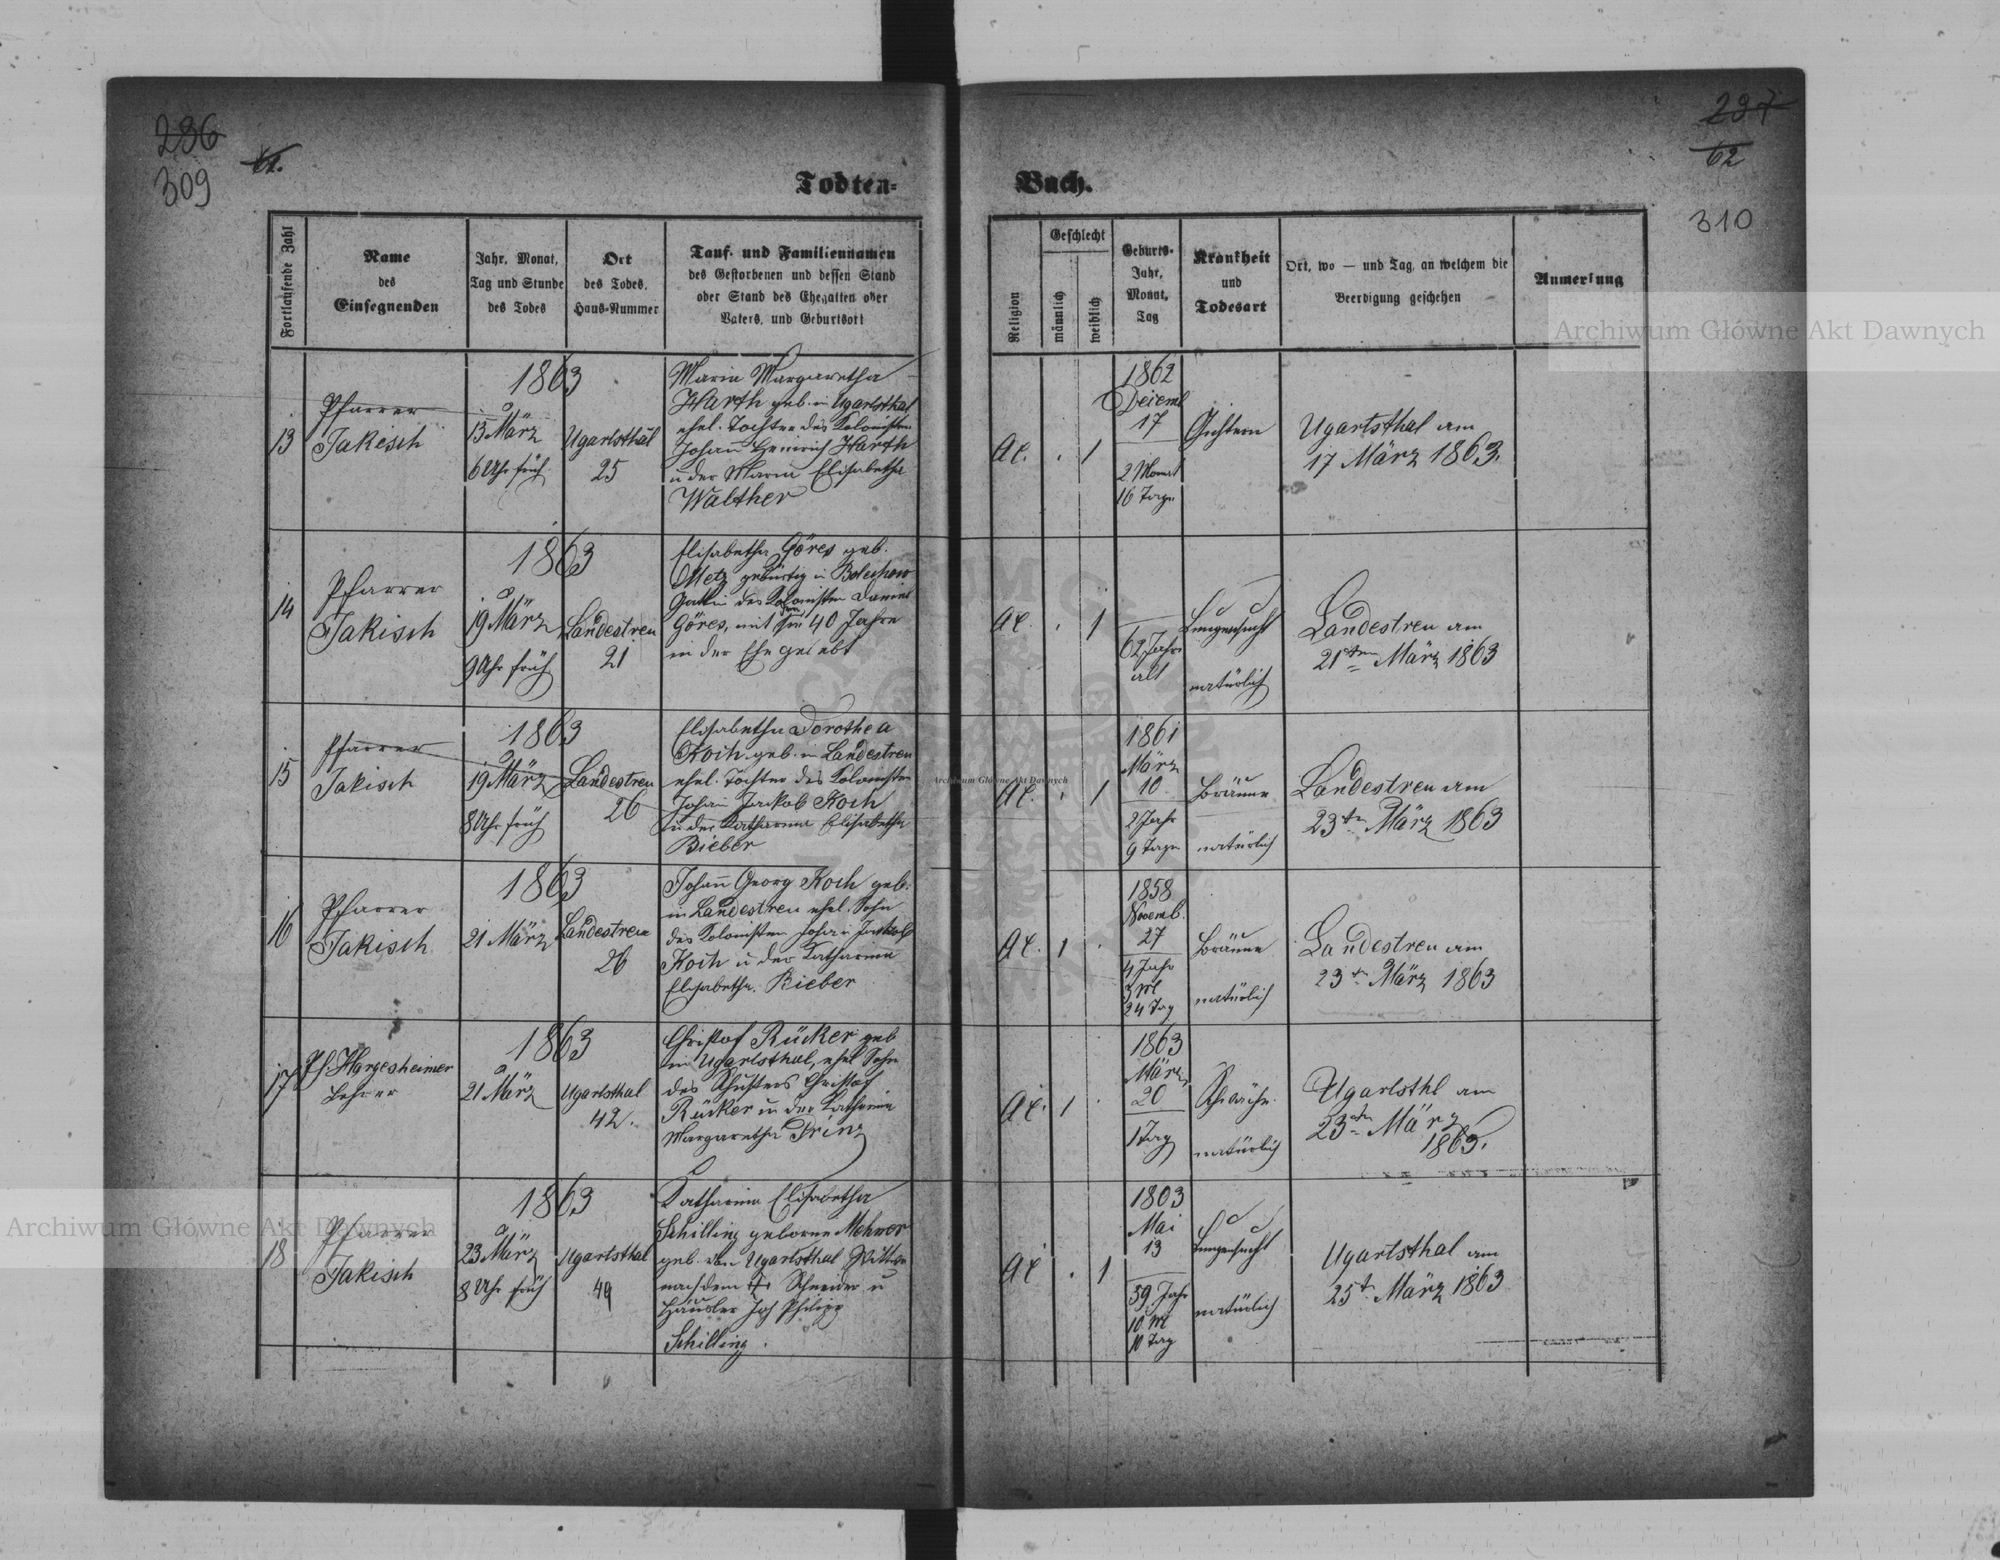 286
309
61.
Todten-
Fortlaufende Zahl
Name
des
Einsegnenden
Jahr, Monat,
Tag und Stunde
des Todes
Ort
des Todes,
Haus-Nummer
Tauf- und Familiennamen
des Gestorbenen und dessen Stand
oder Stand des Ehegatten oder
Vaters, und Geburtsort
13
Pfarrer
Jakisch
1863
15 März
6 Uhr früh
Ugartsthal
25
Maria Margaretha
Harth geb. in Ugartsthal
ehel. Tochter des Kolonisten
Johann Heinrich Harth
u der Maria Elisabetha
Walther
14
Pfarrer
Jakisch
1863
19 März
9 Uhr früh
Landestreu
21
Elisabetha Göres geb.
Metz gebürtig in Bolechow
Gattin des Kolonisten Daniel
Göres, mit ihm 40 Jahre
in der Ehe gelebt
15
Pfarrer
Jakisch
1863
19 März
8 Uhr früh
Landestreu
26
Elisabetha Dorothea
Koch geb. in Landestreu
ehel. Tochter des Kolonisten
Johann Jackob Koch
u der Katharina Elisabetha
Bieber
16
Pfarrer
Jakisch
1863
21 März
Landestreu
26
Johann Georg Koch geb.
in Landestreu ehel. Sohn
des Kolonisten Johann Jackob
Koch u der Katharina
Elisabetha Bieber
17
Pf. Hargesheimer
Lehrer
1863
21 März
Ugartsthal
42.
Christof Rücker geb
in Ugartsthal, ehel Sohn
des Schusters Christof
Rücker u der Katharina
Margaretha Prinz
18
Pfarrer
Jakisch
1863
23 März
8 Uhr früh
Ugartsthal
49
Katharina Elisabetha
Schilling geborne Mehrer
geb. von Ugartsthal Wittwe
nach dem † Schneider u
Häusler Joh Philipp
Schilling.
287
62
310
Buch.
Religion
Geschlecht
männlich
weiblich
Geburts-
Jahr,
Monat,
Tag
Krankheit
und
Todesart
Ort, wo — und Tag, an welchem die
Beerdigung geschehen
Anmerkung
1
1862
17
2 Monat
16 Tage
Gichtern
Ugartsthal am
17 März 1863.
1
62 Jahre
alt
Lungensucht
natürlich
Landestreu am
21ten März 1863
1
1861
März
10
2 Jahr
9 Tage
Bräune
natürlich
Landestreu am
23tn März 1863
1
1858
Novemb.
27
4 Jahr
3 M
24 Tag
Bräune
natürlich
Landestreu am
23tn März 1863
1
1863
März
20
1 Tag
Schwäche
natürlich
Ugartsthl am
23ten März
1863.
1
1803
Mai
13
59 Jahr
10 M
10 Tag
Lungensucht
natürlich
Ugartsthal am
25t März 1863
Archiwum Główne Akt Dawnych
Archiwum Główne Akt Dawnych
Archiwum Główne Akt Dawnych